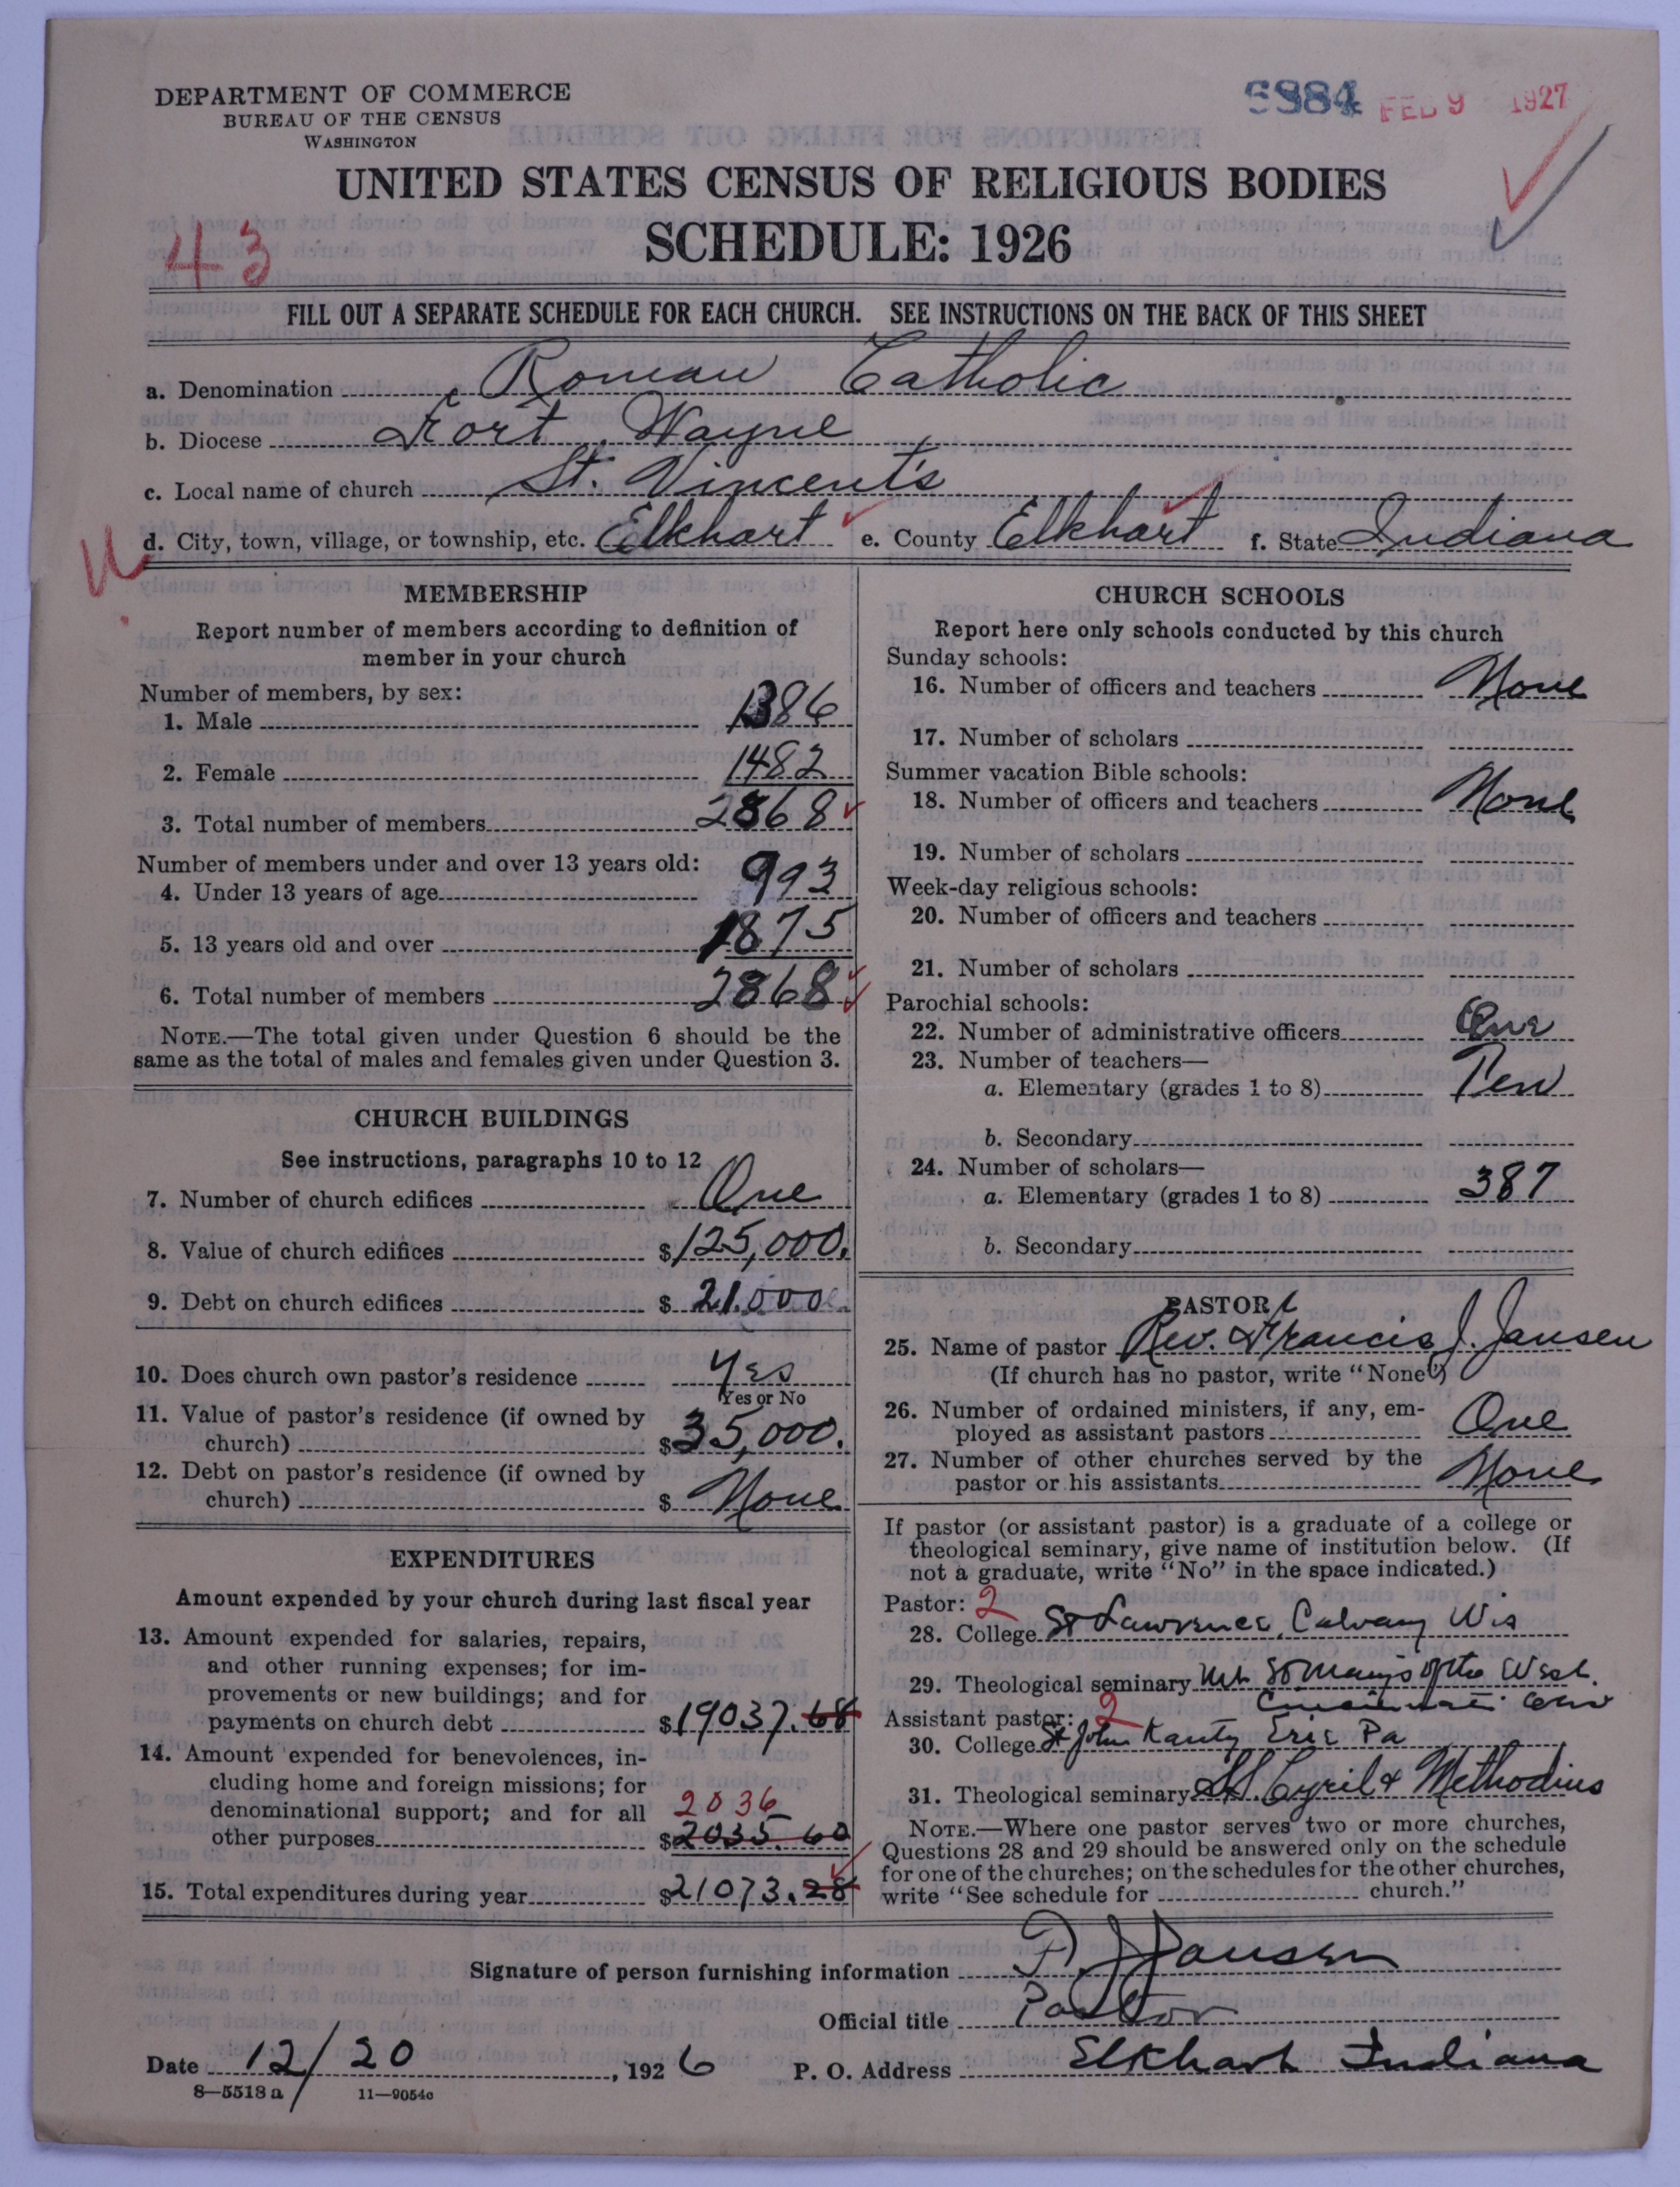 DEPARTMENT OF COMMERCE
BUREAU OF THE CENSUS
WASHINGTON
FEB 9 1927
UNITED STATES CENSUS OF RELIGIOUS BODIES
SCHEDULE: 1926
43
FILL OUT A SEPARATE SCHEDULE FOR EACH CHURCH. SEE INSTRUCTIONS ON THE BACK OF THIS SHEET
a. Denomination Roman Catholic
b. Diocese Fort Wayne
c. Local name of church St. Vincent's
d. City, town, village, or township, etc. Elkhart e. County Elkhart f. State Indiana
MEMBERSHIP
Report number of members according to definition of
member in your church
Number of members, by sex:
1. Male 1386
2. Female 1482
3. Total number of members 2868
Number of members under and over 13 years old:
4. Under 13 years of age 993
5. 13 years old and over 1875
6. Total number of members 2868
NOTE.—The total given under Question 6 should be the
same as the total of males and females given under Question 3.
CHURCH BUILDINGS
See instructions, paragraphs 10 to 12
7. Number of church edifices One
8. Value of church edifices $125,000.
9. Debt on church edifices $21.000
10. Does church own pastor's residence Yes
Yes or No
11. Value of pastor's residence (if owned by
church) $35,000.
12. Debt on pastor's residence (if owned by
church) $ None
EXPENDITURES
Amount expended by your church during last fiscal year
13. Amount expended for salaries, repairs,
and other running expenses; for im-
provements or new buildings; and for
payments on church debt $19037.68
14. Amount expended for benevolences, in-
cluding home and foreign missions; for
denominational support; and for all 2036
other purposes $2035 60
15. Total expenditures during year $21073.28
CHURCH SCHOOLS
Report here only schools conducted by this church
Sunday schools:
16. Number of officers and teachers None
17. Number of scholars
Summer vacation Bible schools:
18. Number of officers and teachers None
19. Number of scholars
Week-day religious schools:
20. Number of officers and teachers
21. Number of scholars
Parochial schools:
22. Number of administrative officers One
23. Number of teachers—
a. Elementary (grades 1 to 8) Ten
b. Secondary
24. Number of scholars—
a. Elementary (grades 1 to 8) 387
b. Secondary
PASTOR
25. Name of pastor Rev. Francis J. Jansen
(If church has no pastor, write "None")
26. Number of ordained ministers, if any, em-
ployed as assistant pastors One
27. Number of other churches served by the
pastor or his assistants None
If pastor (or assistant pastor) is a graduate of a college or
theological seminary, give name of institution below. (If
not a graduate, write "No" in the space indicated.)
Pastor: 2
28. College St Lawrence, Calvary Wis
29. Theological seminary Mt St Mary's of the West.
Cincinnati Ohio
Assistant pastor: 2
30. College St John Kanty Erie Pa
31. Theological seminary SS. Cyril & Methodius
NOTE.—Where one pastor serves two or more churches,
Questions 28 and 29 should be answered only on the schedule
for one of the churches; on the schedules for the other churches,
write "See schedule for church."
Signature of person furnishing information F J Jansen
Official title Pastor
Date 12/20, 1926 P. O. Address Elkhart Indiana
8—5518 a 11—9054c